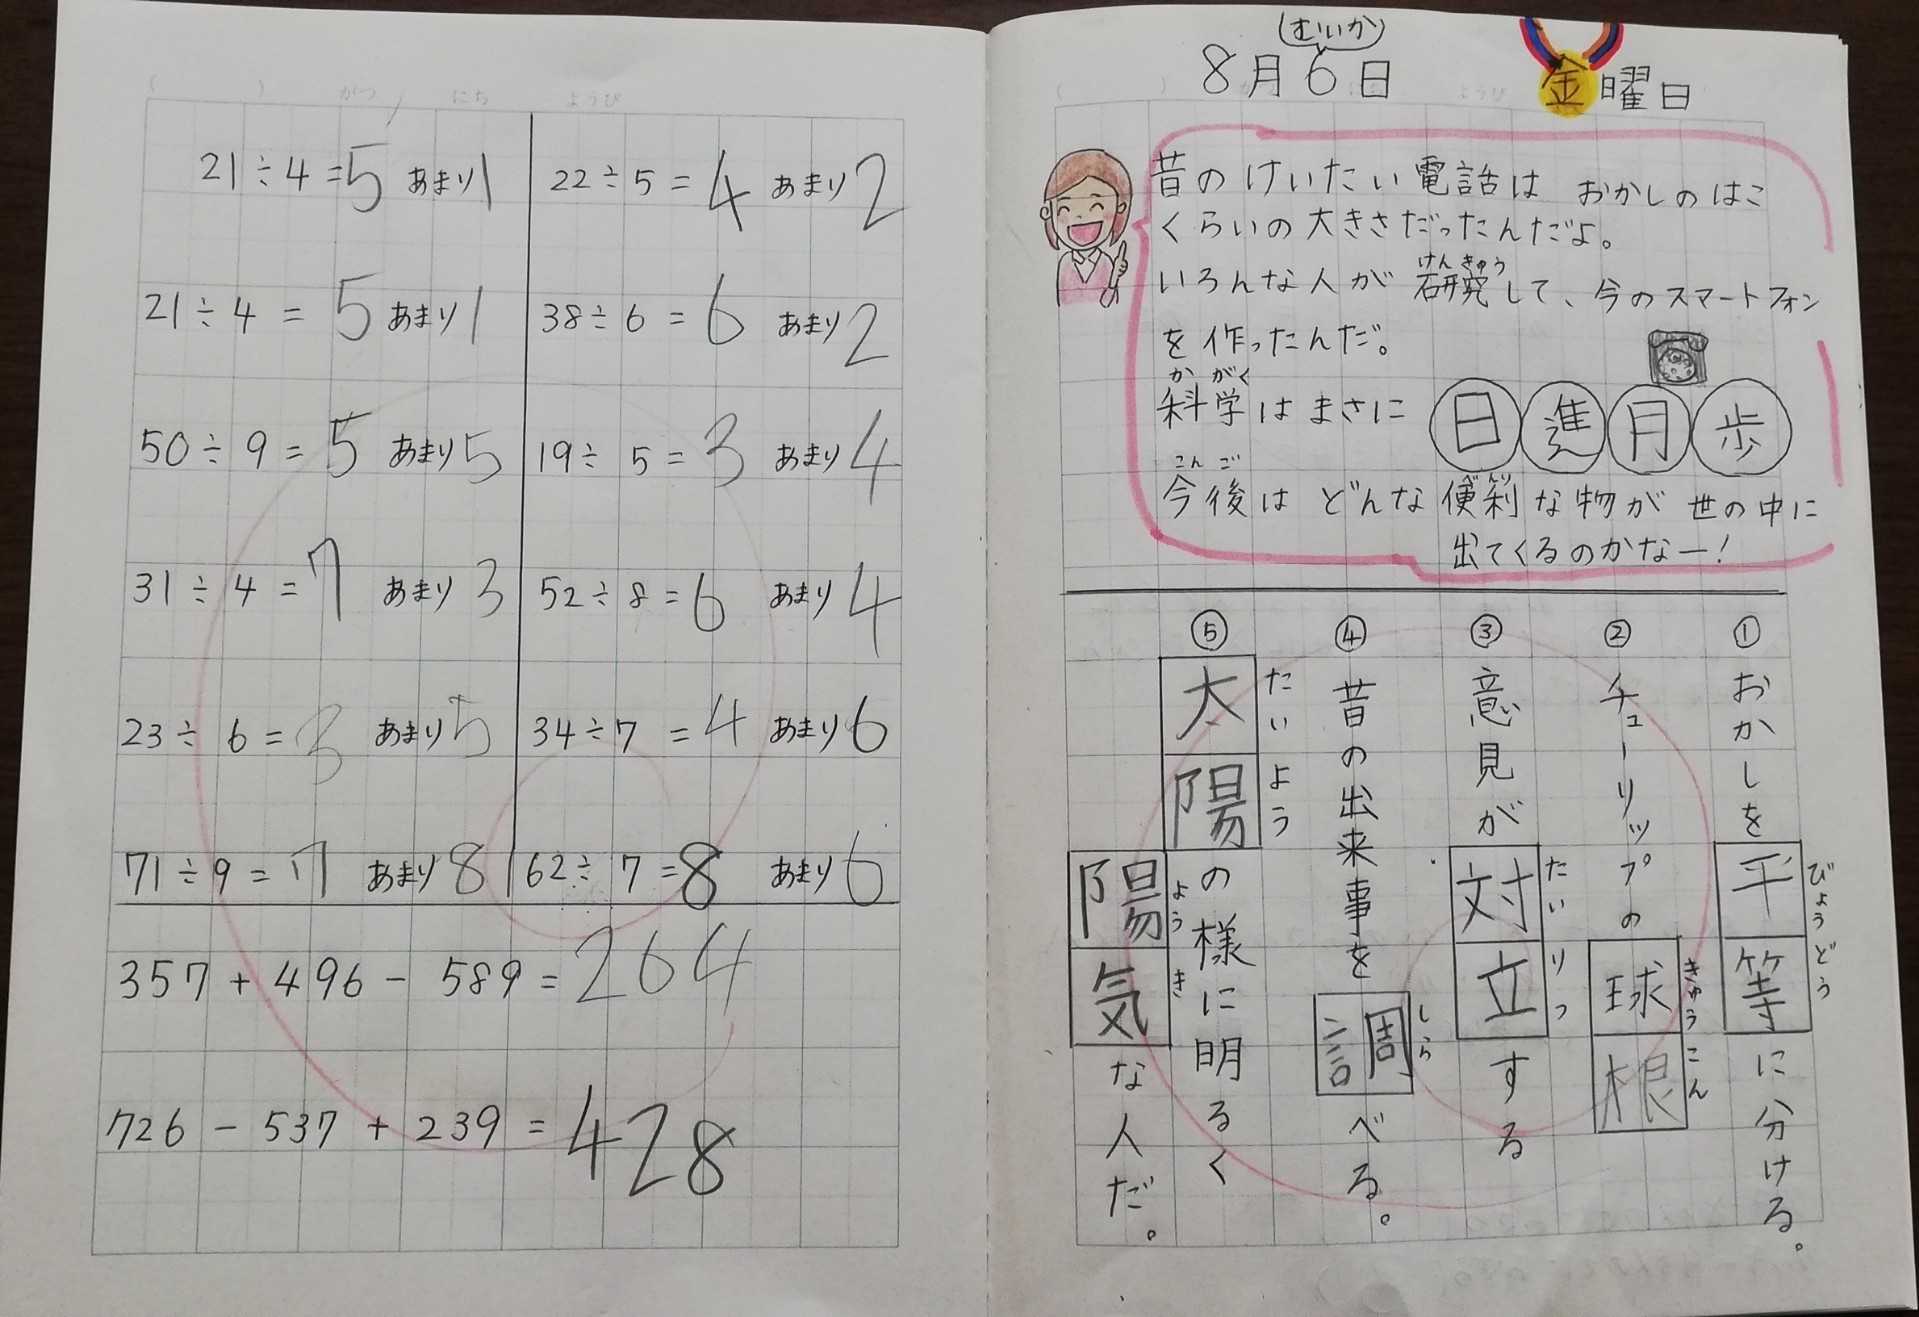 21÷4=5 あまり1
22÷5=4 あまり2
21÷4=5 あまり1
38÷6=6 あまり2
50÷9=5 あまり5
19÷5=3 あまり4
31÷4=7 あまり3
52÷8=6 あまり4
23÷6=3 あまり5
34÷7=4 あまり6
71÷9=7 あまり8
62÷7=8 あまり6
357+496-589=264
726-537+239=428
むいか
8月6日 金曜日
昔のけいたい電話は おかしのはこ
くらいの大きさだったんだよ。
けんきゅう
いろんな人が研究して、今のスマートフォン
を作ったんだ。
かがく
科学はまさに 日進月歩
こんご べんり
今後は どんな便利な物が 世の中に
出てくるのかなー!
①おかしを平等に分ける。
びょうどう
②チューリップの球根
きゅうこん
③意見が対立する
たいりつ
④昔の出来事を調べる。
しら
⑤太陽の様に明るく
たいよう
陽気な人だ。
ようき
(　) がつ にち ようび
(　) ようび